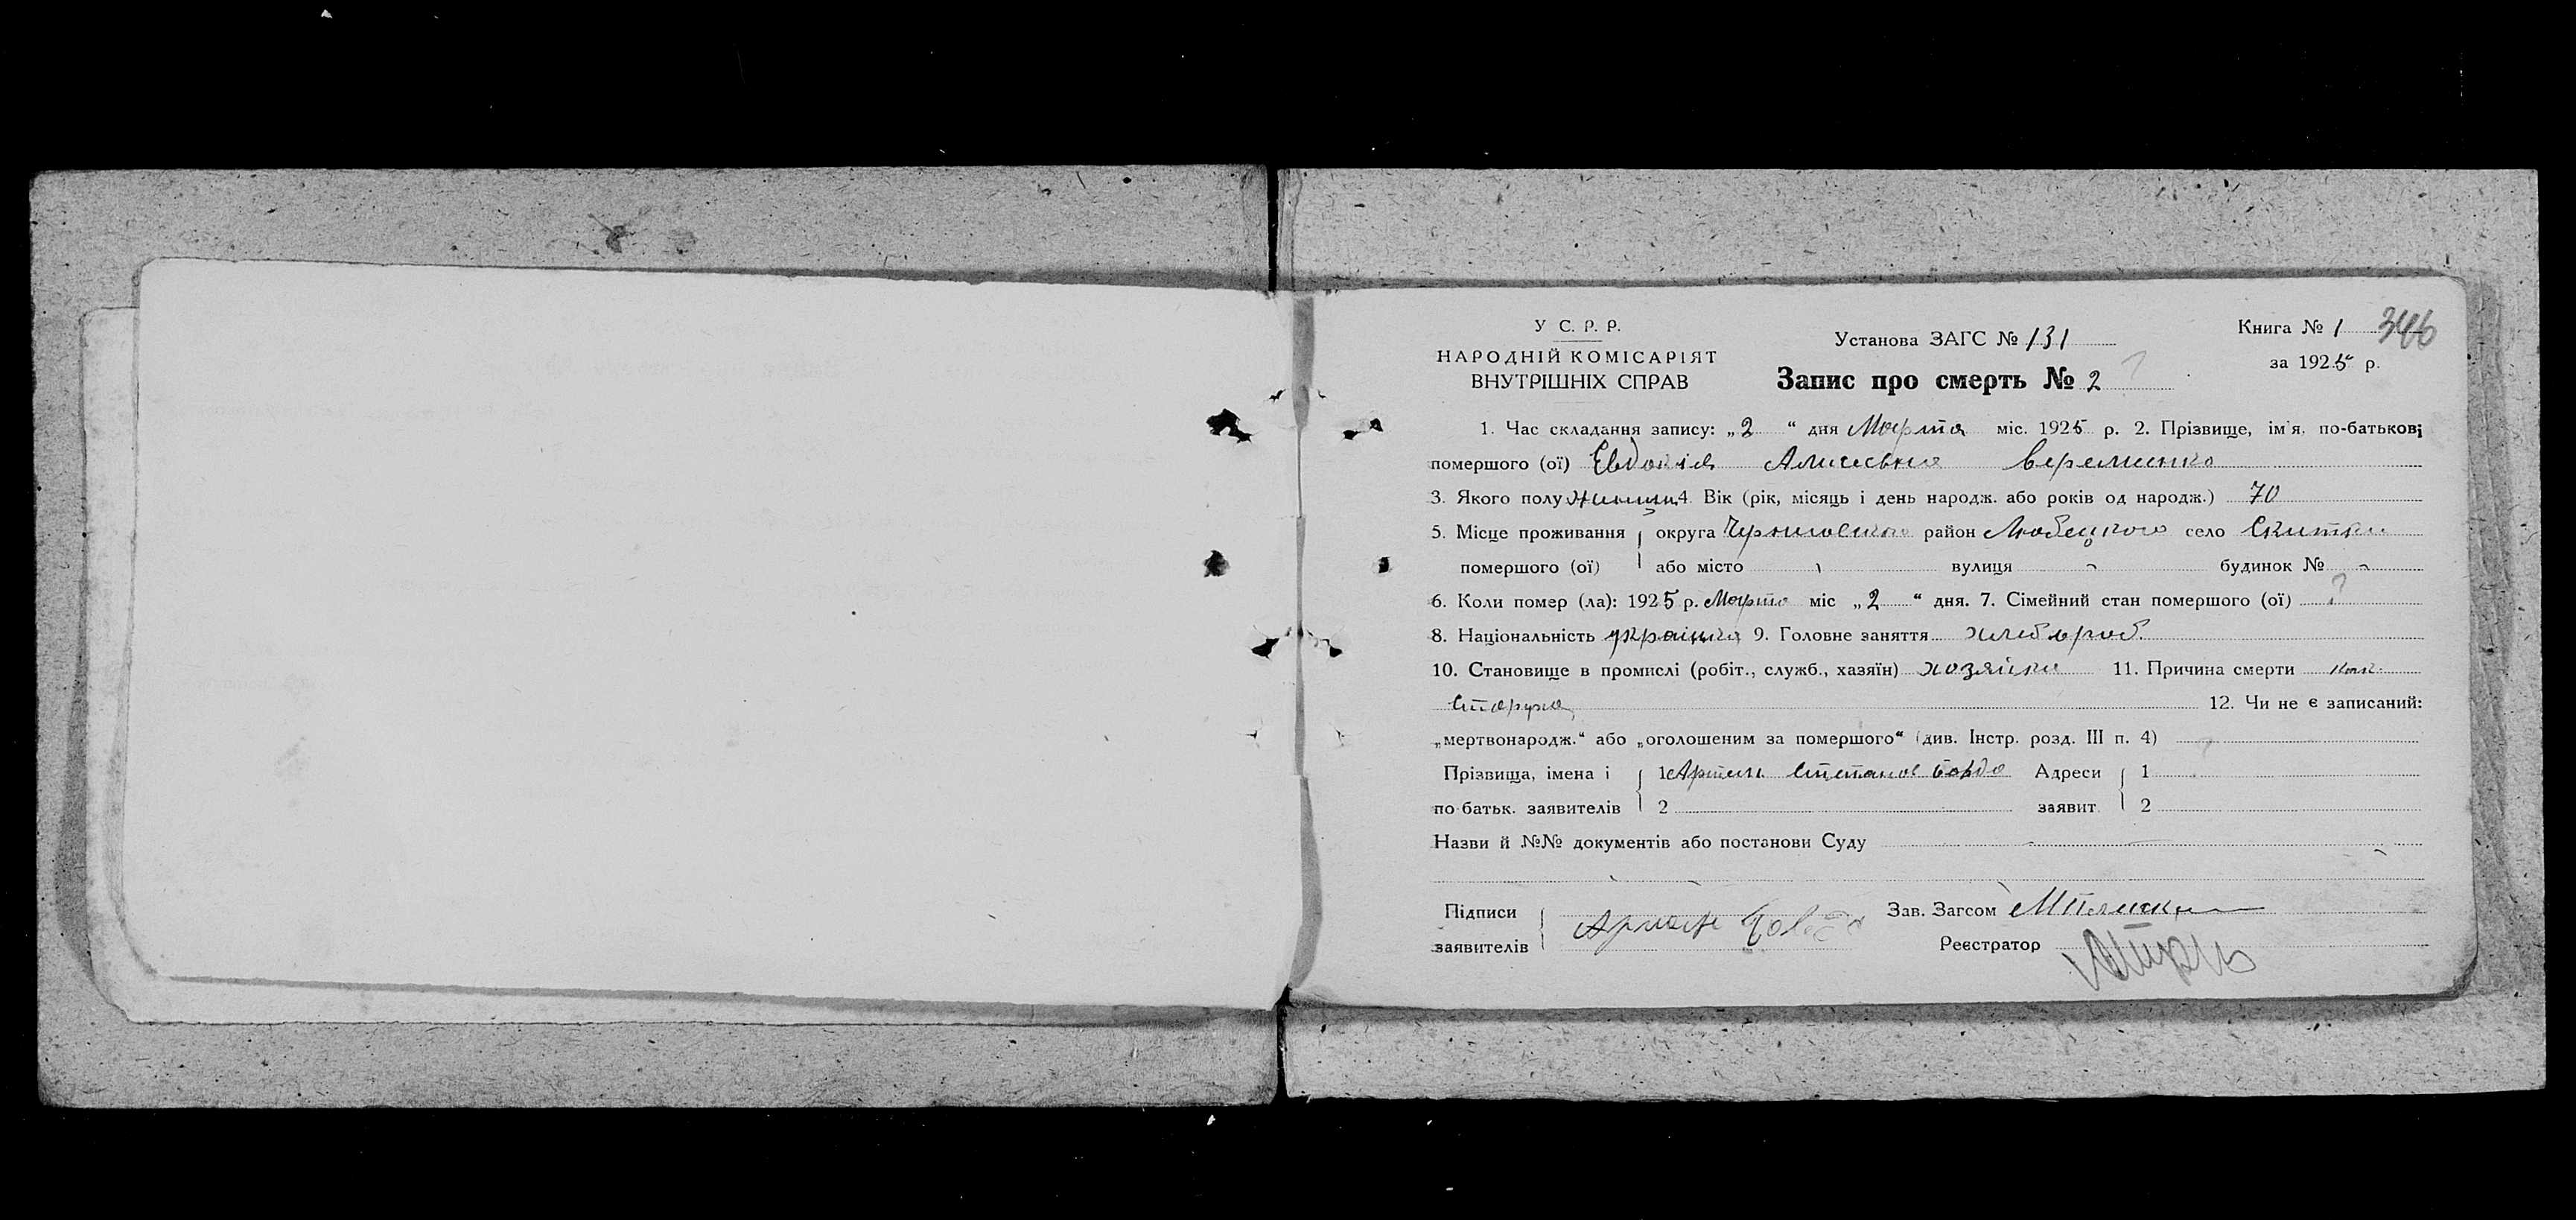 У С. Р. Р.
НАРОДНІЙ КОМІСАРІЯТ
ВНУТРІШНІХ СПРАВ
Установа ЗАГС № 131
Запис про смерть № 2
Книга № 1 346
за 1925 р.
1. Час складання запису: „2“ дня Марта міс. 1925 р. 2. Прізвище, ім'я, по-батькові
помершого (ої) Евдокія
3. Якого полу 4. Вік (рік, місяць і день народж. або років од народж.) 70
5. Місце проживання округа район Любецкого село Скитки
помершого (ої) або місто вулиця будинок №
6. Коли помер (ла): 1925 р. Марта міс „2“ дня. 7. Сімейний стан помершого (ої) ?
8. Національність українка 9. Головне заняття хлебороб
10. Становище в промислі (робіт., служб., хазяїн) хозяйка 11. Причина смерти
12. Чи не є записаний:
„мертвонародж.“ або „оголошеним за помершого“ (див. Інстр. розд. III п. 4)
Прізвища, імена і 1 Степанов Адреси 1
по батьк. заявителів 2 заявит. 2
Назви й №№ документів або постанови Суду
Підписи Зав. Загсом
заявителів Реєстратор